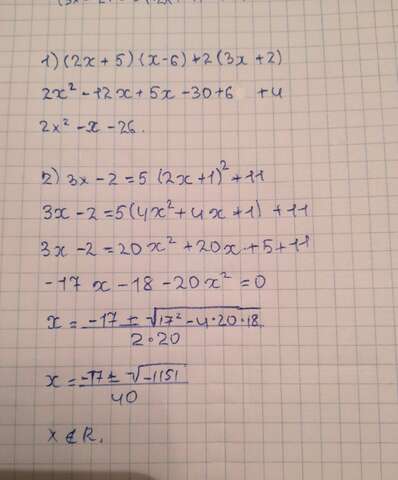 1) (2x + 5) (x - 6) + 2 (3x + 2)
2x² - 12x + 5x - 30 + 6 + 4
2x² - x - 26.
2) 3x - 2 = 5 (2x + 1)² + 11
3x - 2 = 5(4x² + 4x + 1) + 11
3x - 2 = 20x² + 20x + 5 + 11
-17x - 18 - 20x² = 0
x = (-17 ± √(17² - 4·20·18)) / (2·20)
x = (-17 ± √(-1151)) / 40
x ∉ R.